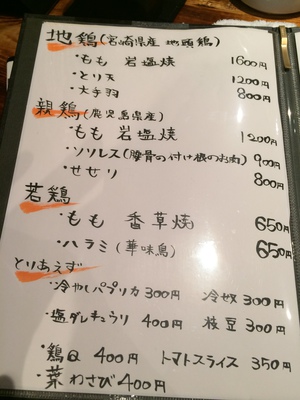 地鶏(宮崎県産 地頭鶏)
・もも 岩塩焼 1600円
・とり天 1200円
・大手羽 800円
親鶏(鹿児島県産)
・もも 岩塩焼 1200円
・ソリレス(腰骨の付け根のお肉) 900円
・せせり 800円
若鶏
・もも 香草焼 650円
・ハラミ(華味鳥) 650円
とりあえず
・冷やしパプリカ 300円 冷奴 300円
・塩ダレキュウリ 400円 枝豆 300円
・鶏Q 400円 トマトスライス 350円
・葉わさび 400円